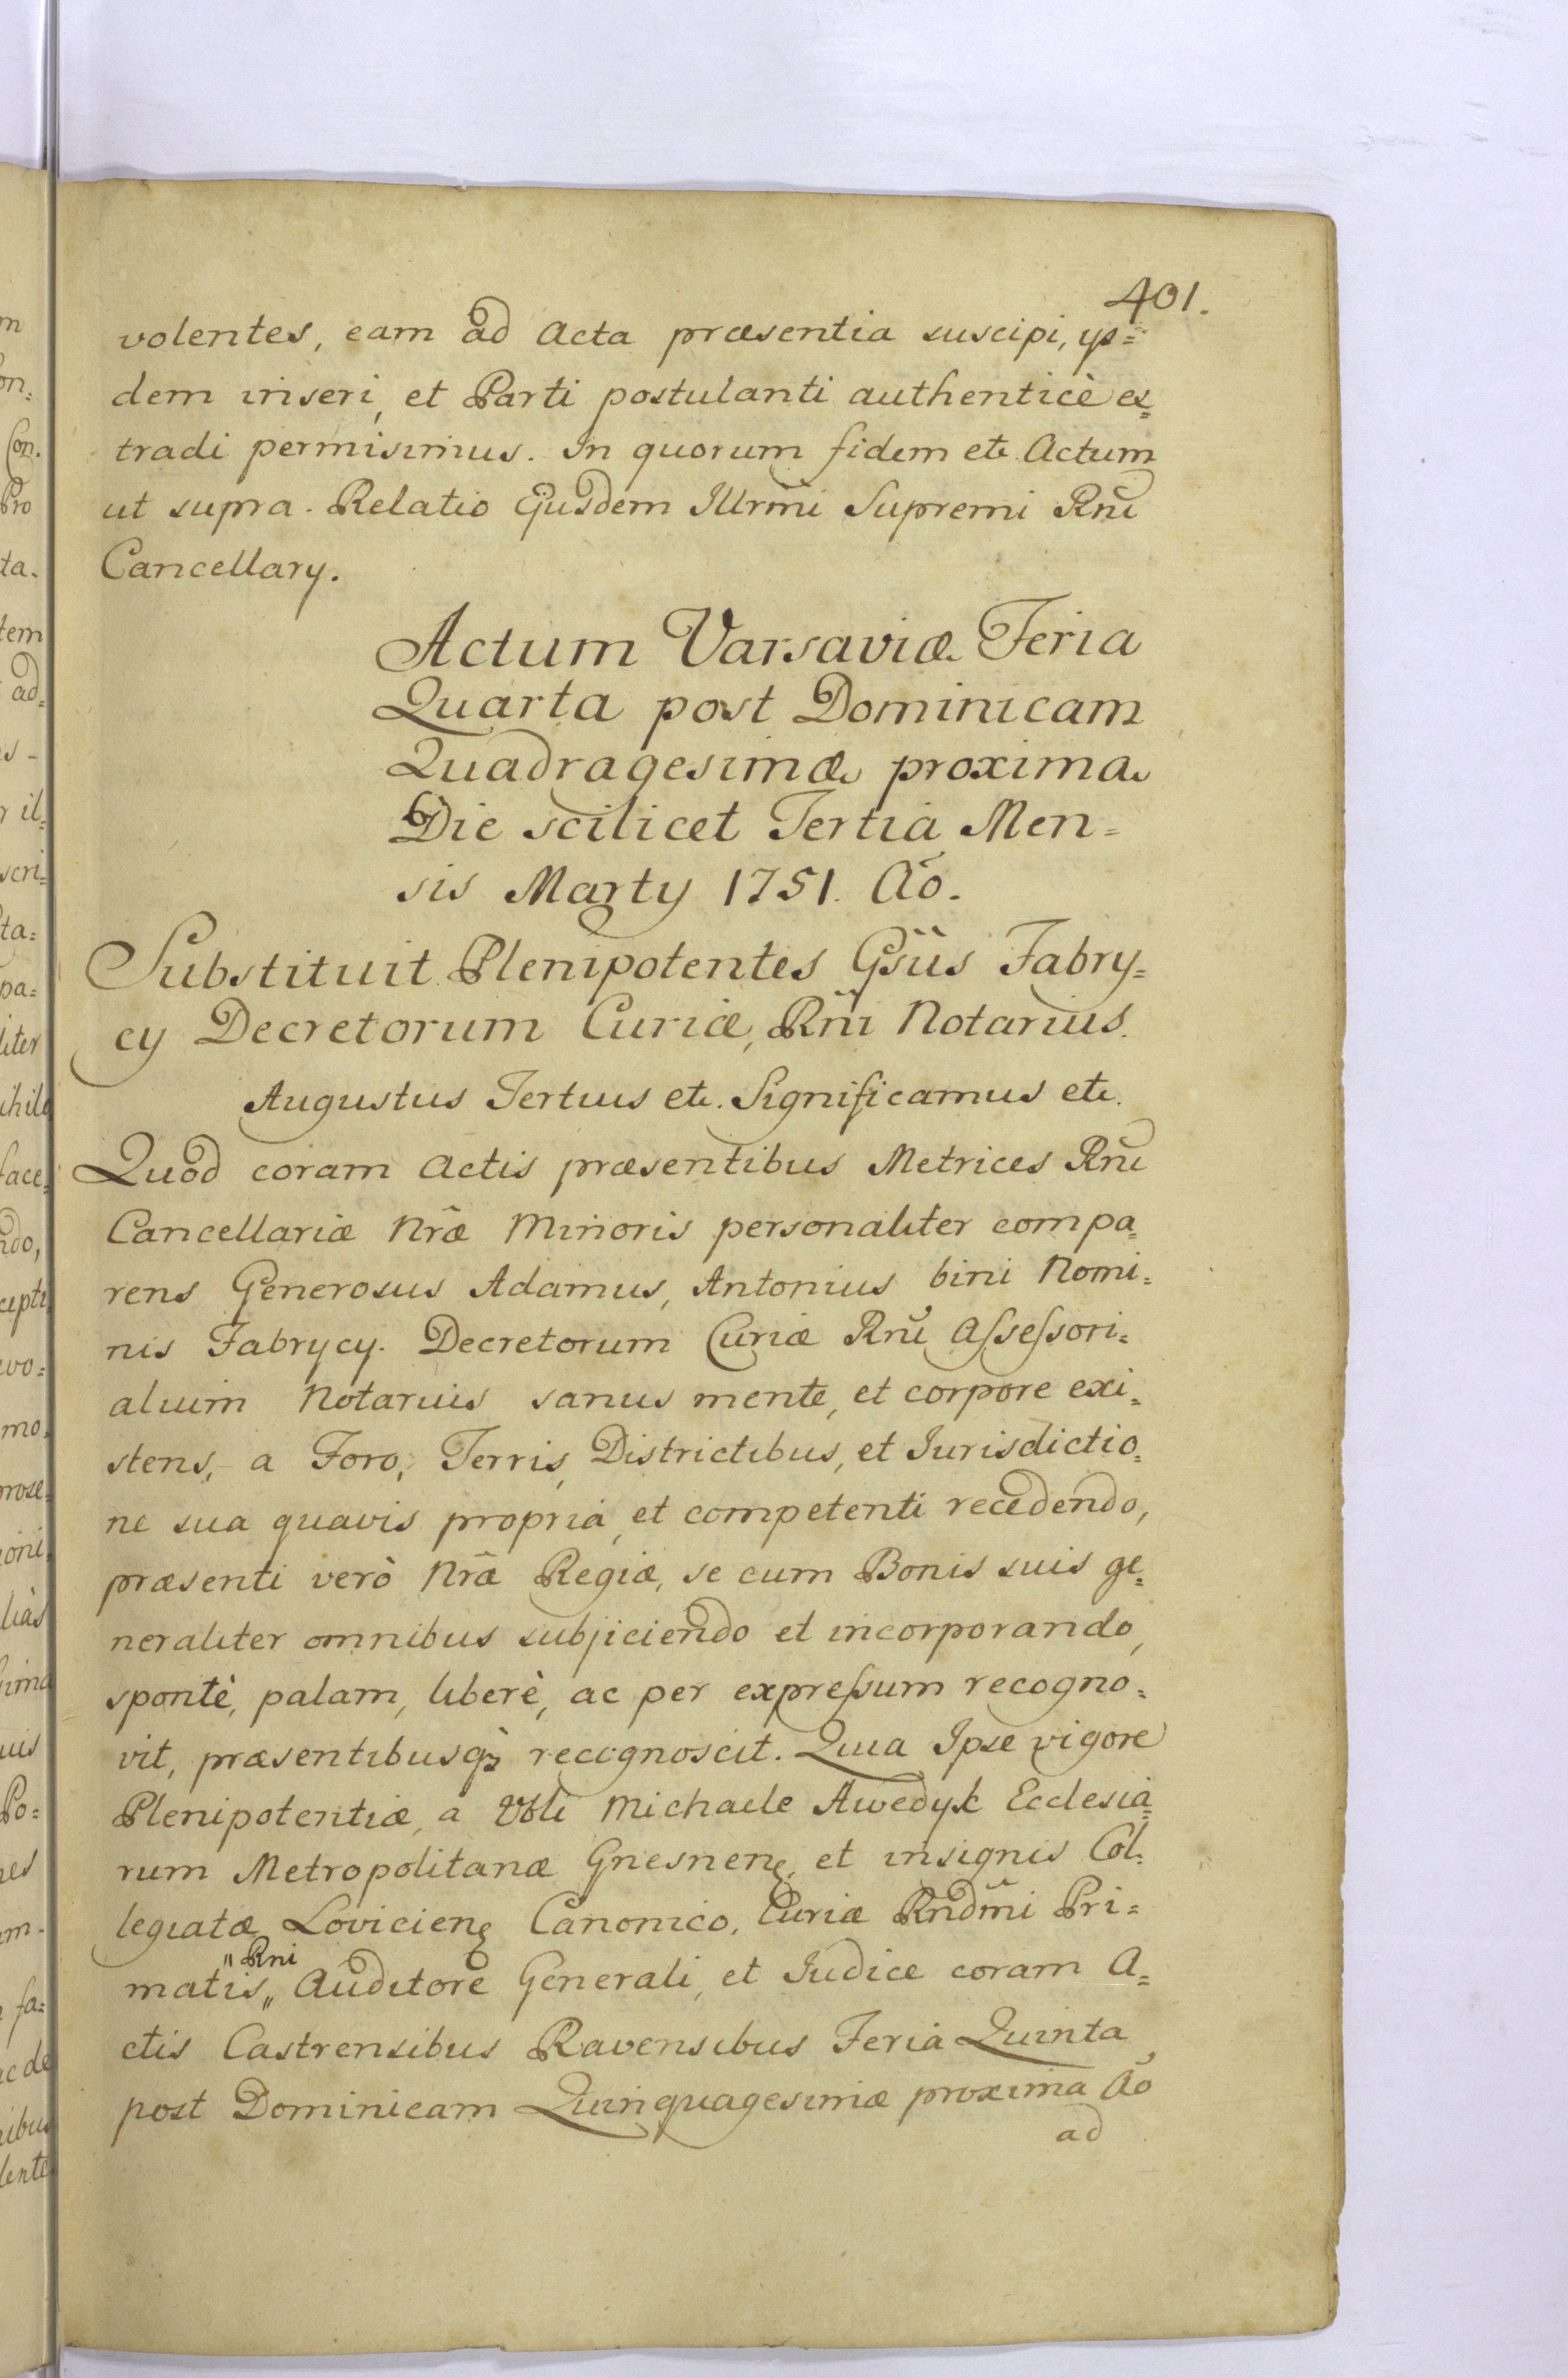 401.
volentes, eam ad Acta præsentia suscipi, ys=
dem inseri, et Parti postulanti authenticè ex=
tradi permisimus. In quorum fidem etc Actum
ut supra. Relatio Ejusdem Illrmi Supremi Rñi
Cancellary.
Actum Varsaviæ Feria
Quarta post Dominicam
Quadragesimæ proxima
Die scilicet Tertia Men=
sis Marty 1751. Aõ.
Substituit Plenipotentes Gsûs Fabry=
cy Decretorum Curiæ, Rñi Notarius.
Augustus Tertius etc. Significamus etc.
Quod coram Actis præsentibus Metrices Rñi
Cancellariæ Nræ Minoris personaliter compa=
rens Generosus Adamus, Antonius bini Nomi=
nis Fabrycy. Decretorum Curiæ Rñi Assessori=
alium Notarius sanus mente, et corpore exi=
stens, a Foro, Terris, Districtibus, et Iurisdictio=
ne sua quavis propria, et competenti recedendo,
præsenti verò Nræ Regiæ, se cum Bonis suis ge=
neraliter omnibus subjiciendo et incorporando,
spontè, palam, liberè, ac per expressum recogno=
vit, præsentibusq̀ recognoscit. Quia Ipse vigore
Plenipotentiæ, a Vbli Michaele Awedyk Ecclesia=
rum Metropolitanæ Gnesnenę, et insignis Col=
legiatæ Lovicienę Canonico, Curiæ Rndm̃i Pri=
matis „Rni„ Auditore Generali, et Iudice coram A=
ctis Castrensibus Ravensibus Feria Quinta
post Dominicam Quinquagesimæ proxima Aõ
ad